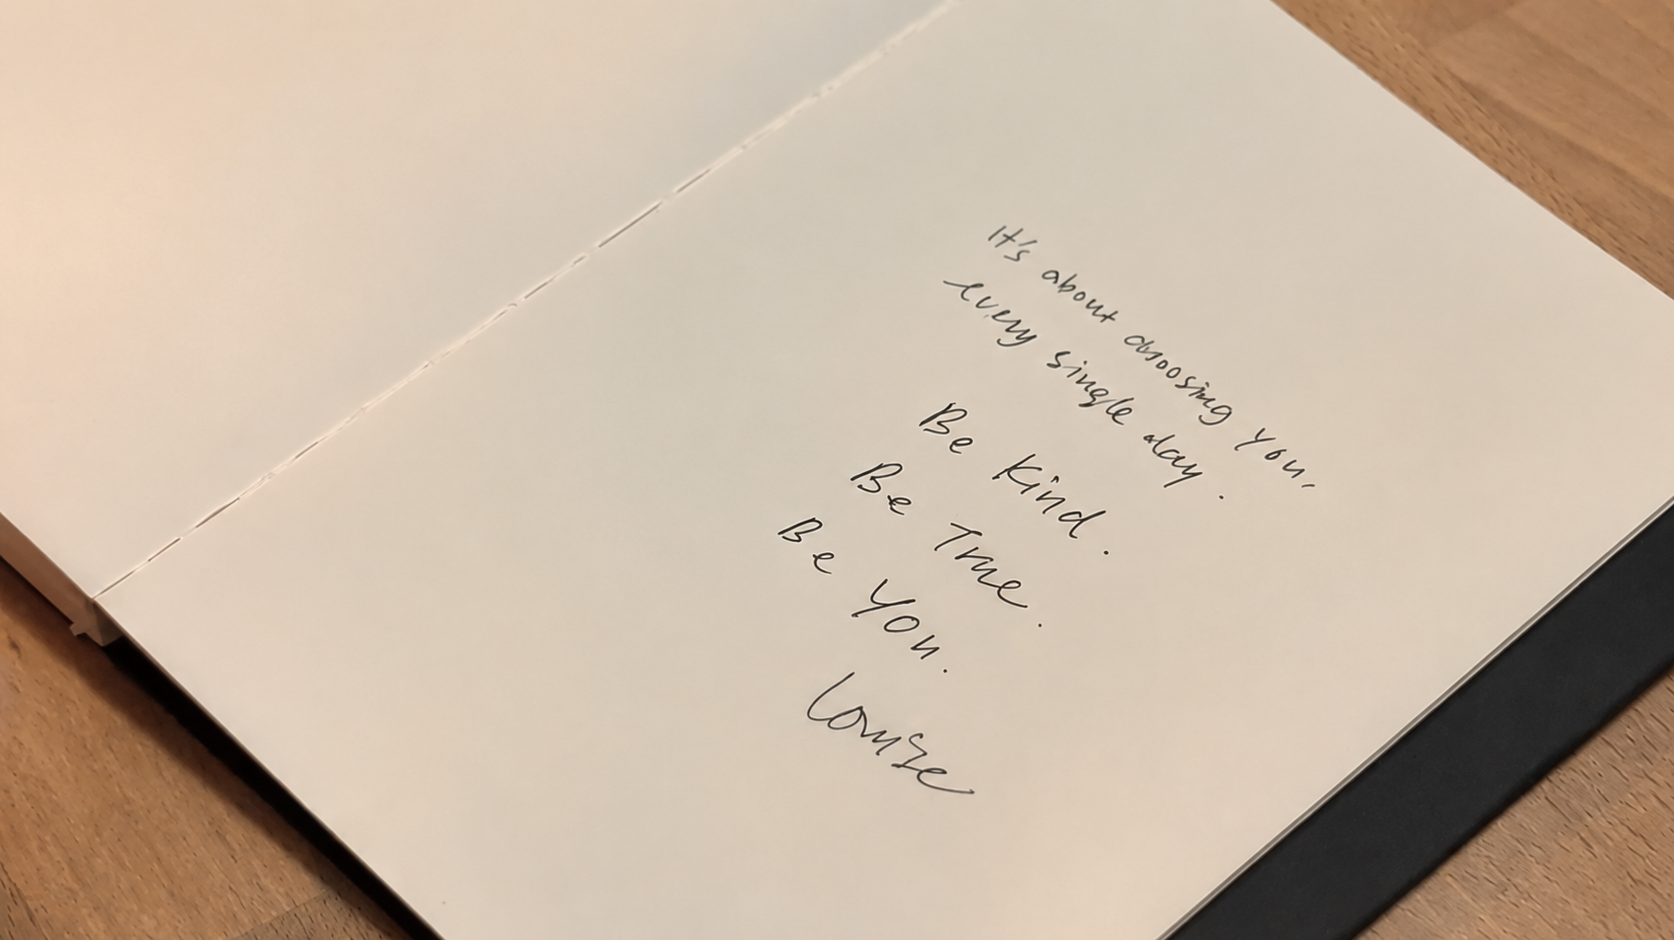 It's about choosing you,
every single day.
Be Kind.
Be True.
Be You.
Louise